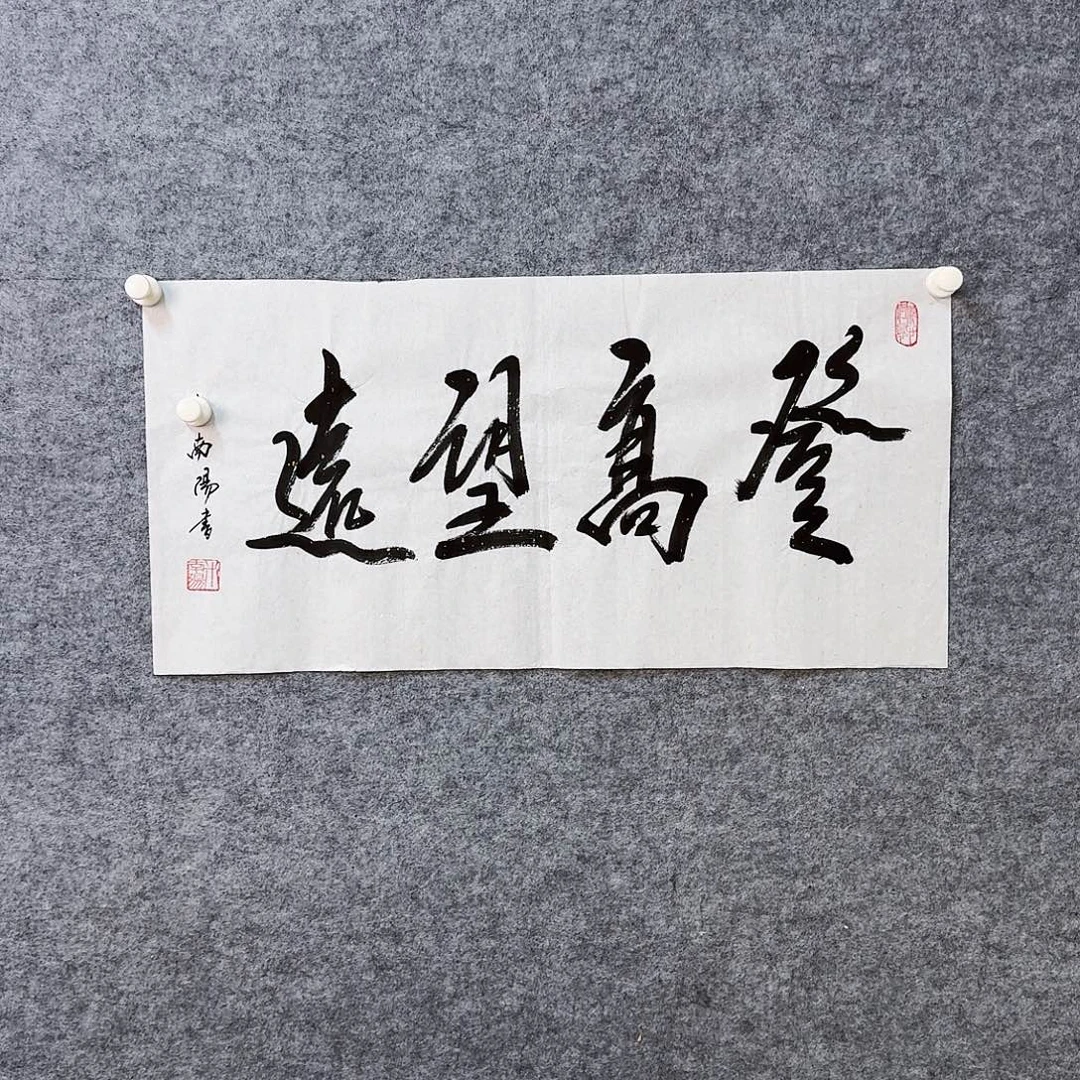 登高望遠
南陽書